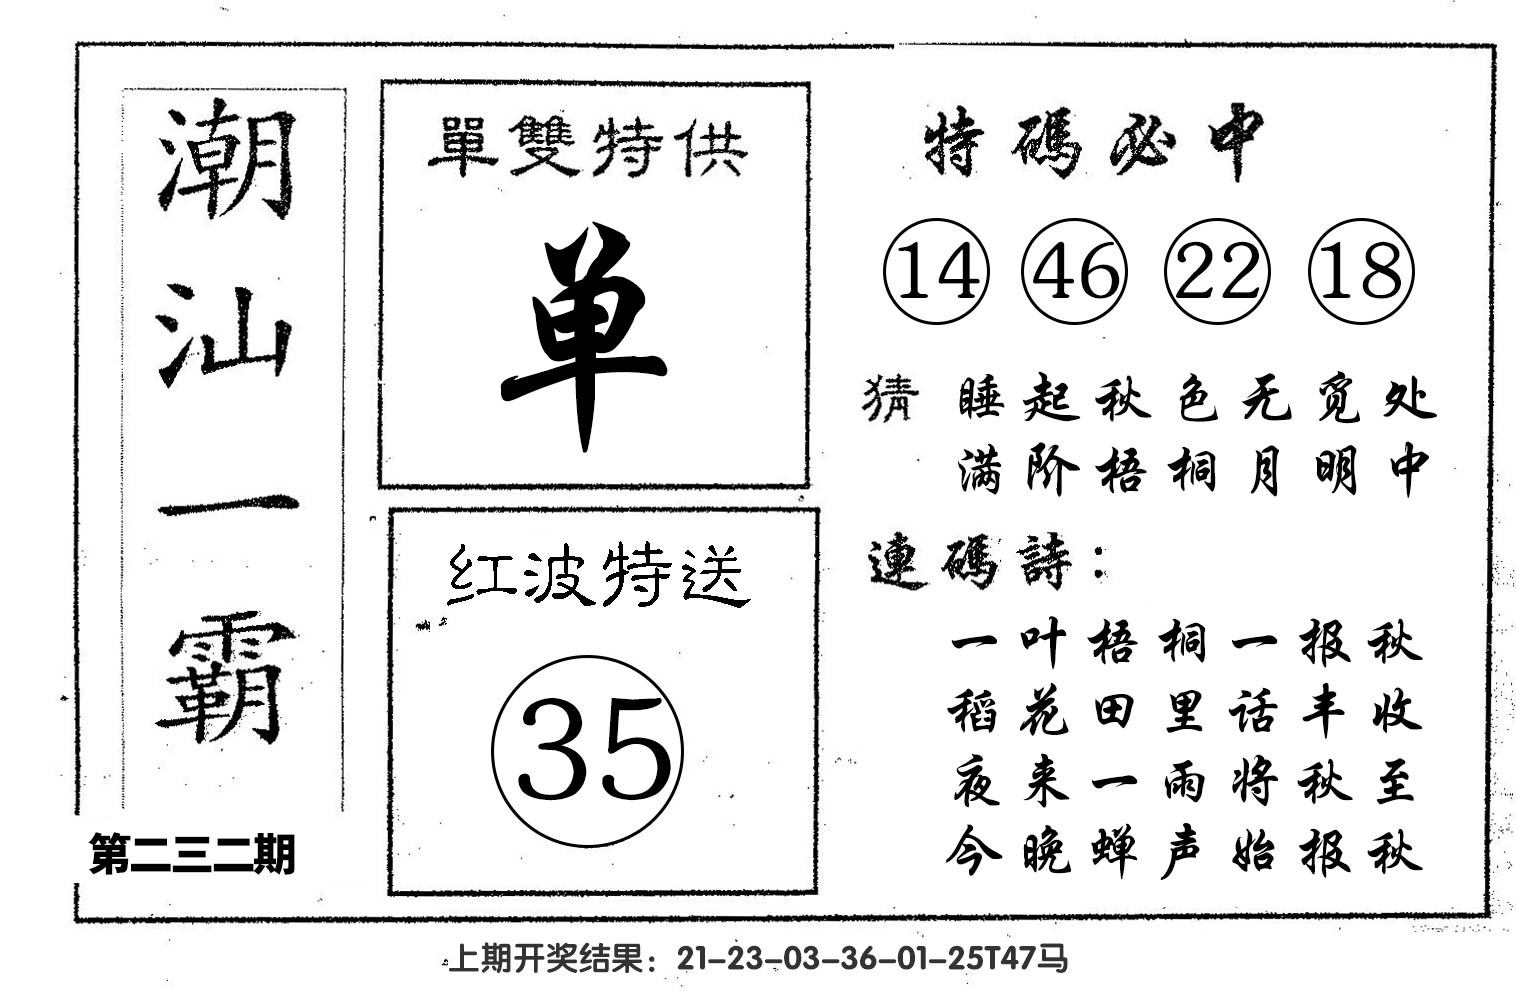 潮汕一霸
第二三二期
單雙特供
单
红波特送
35
特碼必中
14 46 22 18
猜 睡起秋色无觅处
满阶梧桐月明中
連碼詩：
一叶梧桐一报秋
稻花田里话丰收
夜来一雨将秋至
今晚蝉声始报秋
上期开奖结果：21-23-03-36-01-25T47马